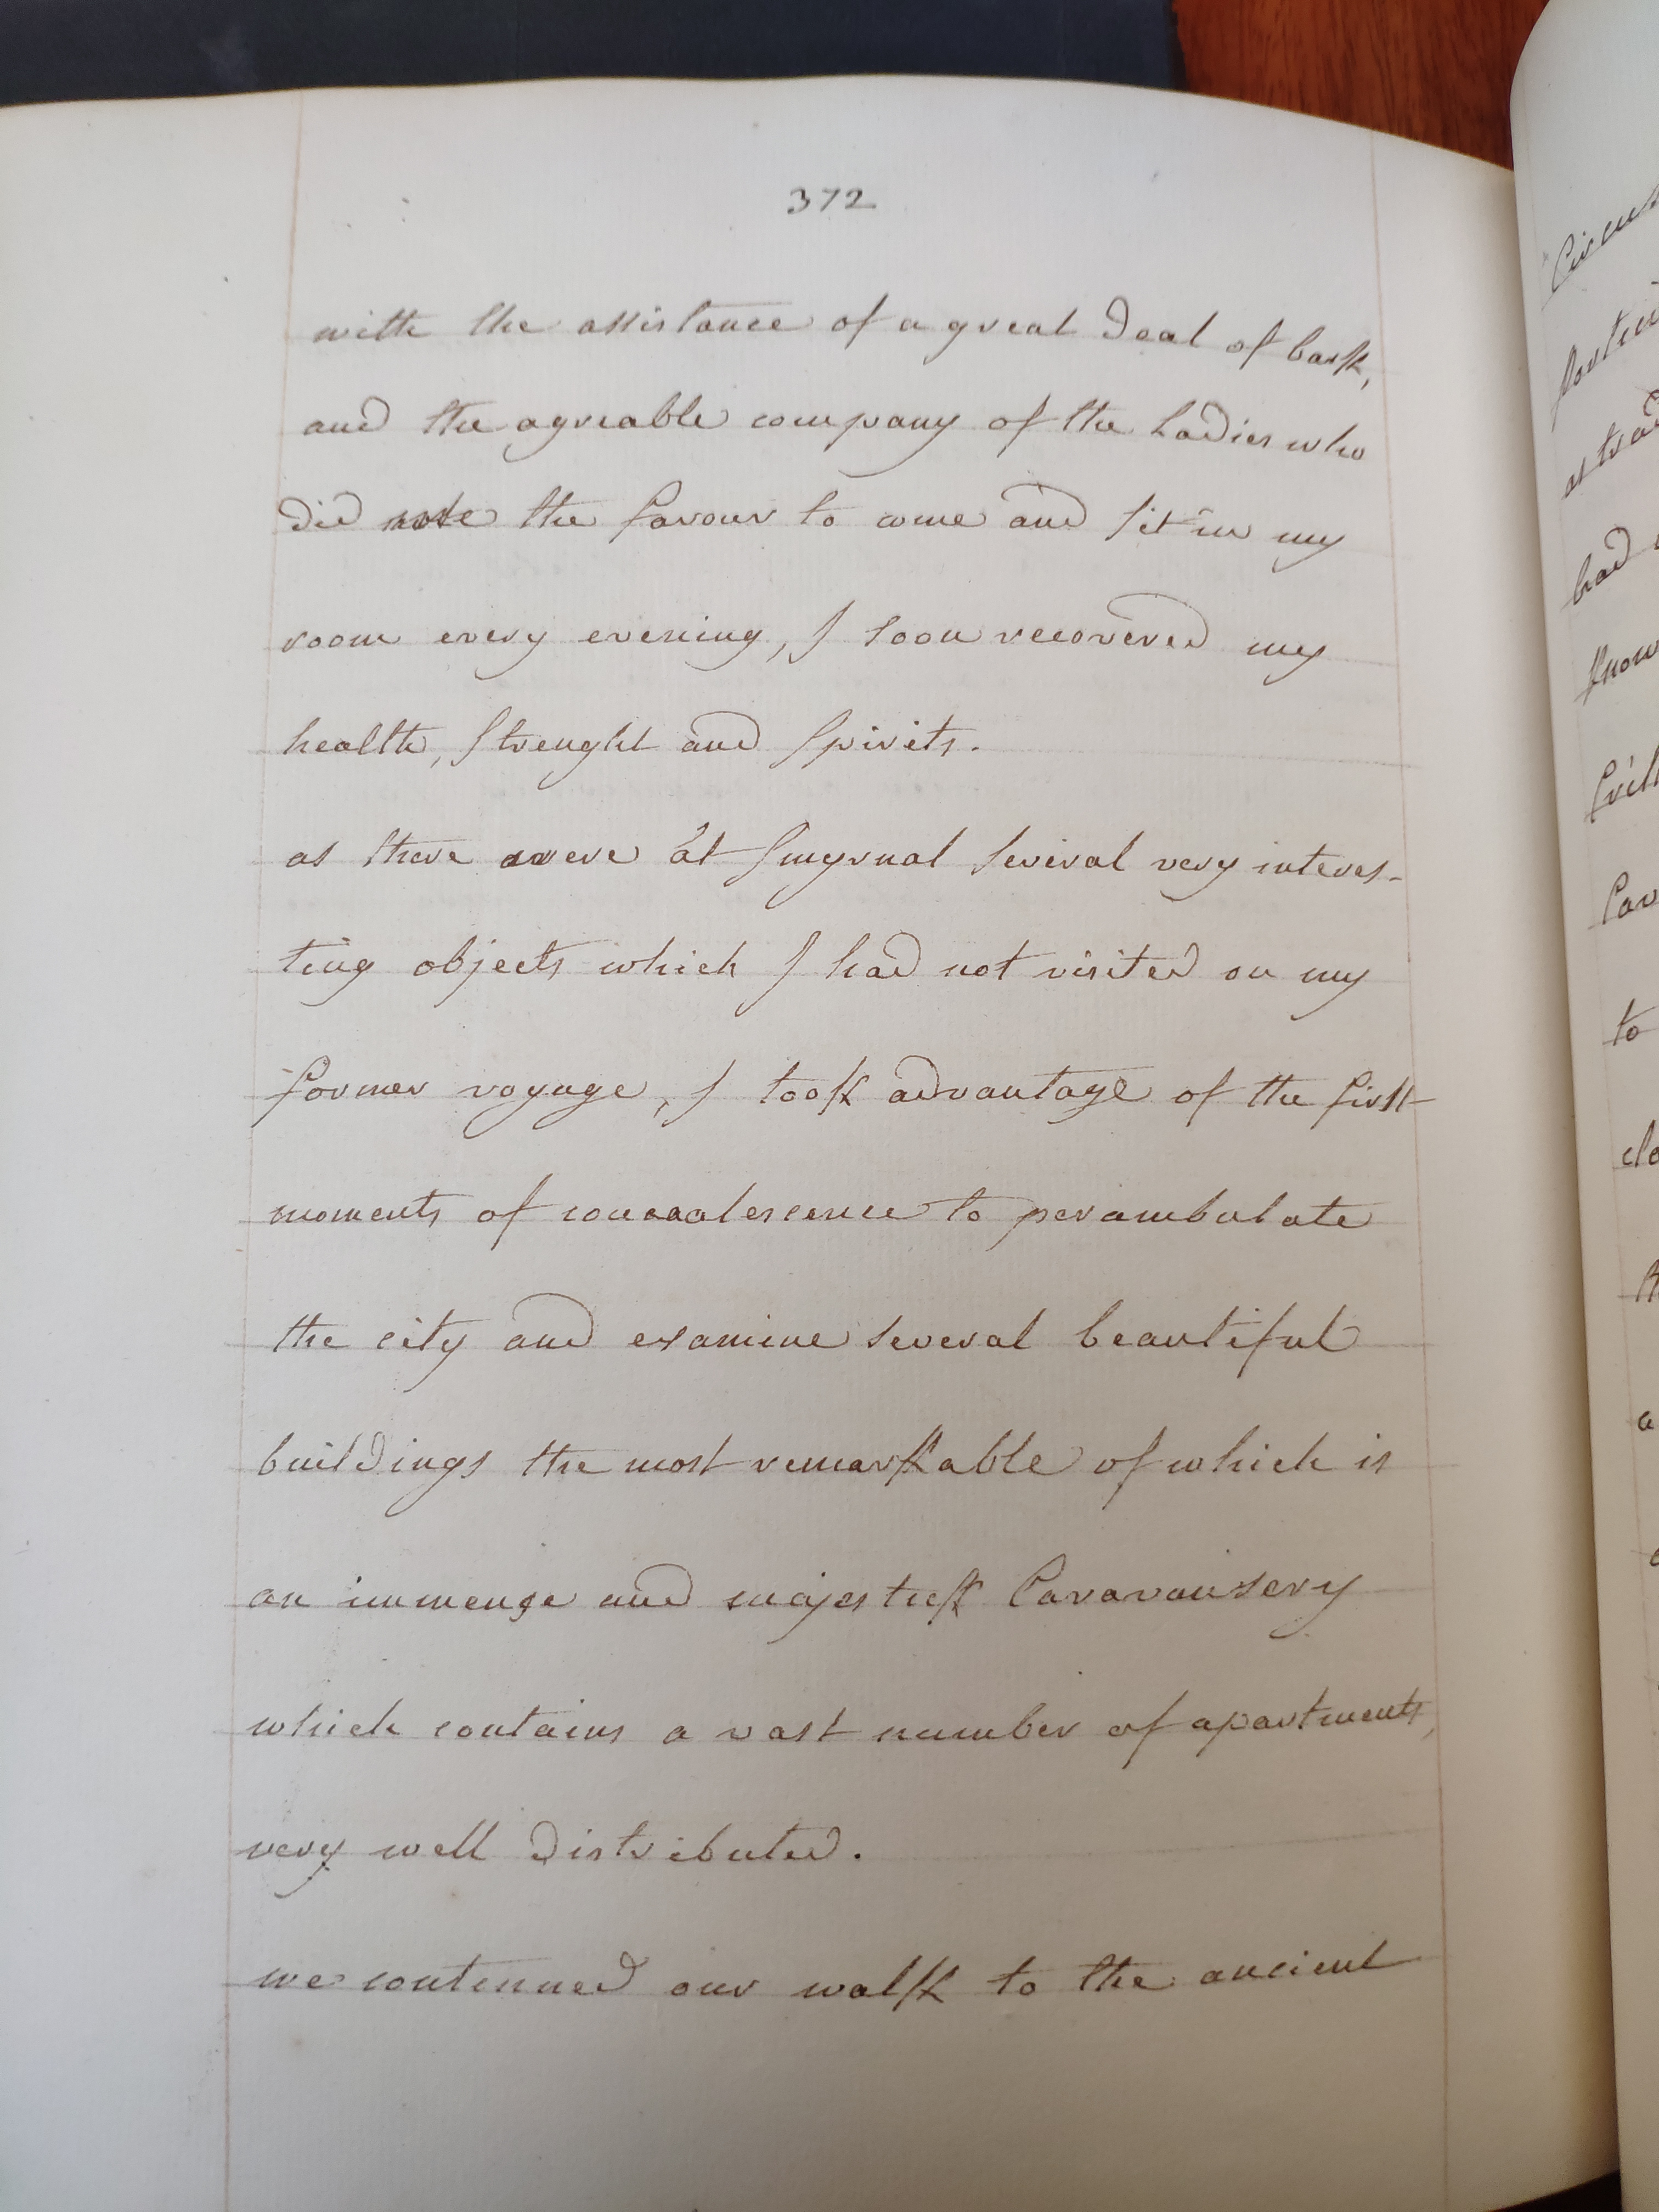 372
with the assistance of a great Deal of bark,
and the agreable company of the Ladies who
Did me the favour to come and sit in my
room every evening, I soon recovered my
health, strenght and spirits.
as there were at Smyrna several very interes-
ting objects which I had not visited on my
former voyage, I took advantage of the first
moments of convalescence to perambulate
the city and examine several beautiful
buildings the most remarkable of which is
an immense and majestick Caravansery
which contains a vast number of apartments,
very well Distributed.
we continued our walk to the ancient
had
know
to